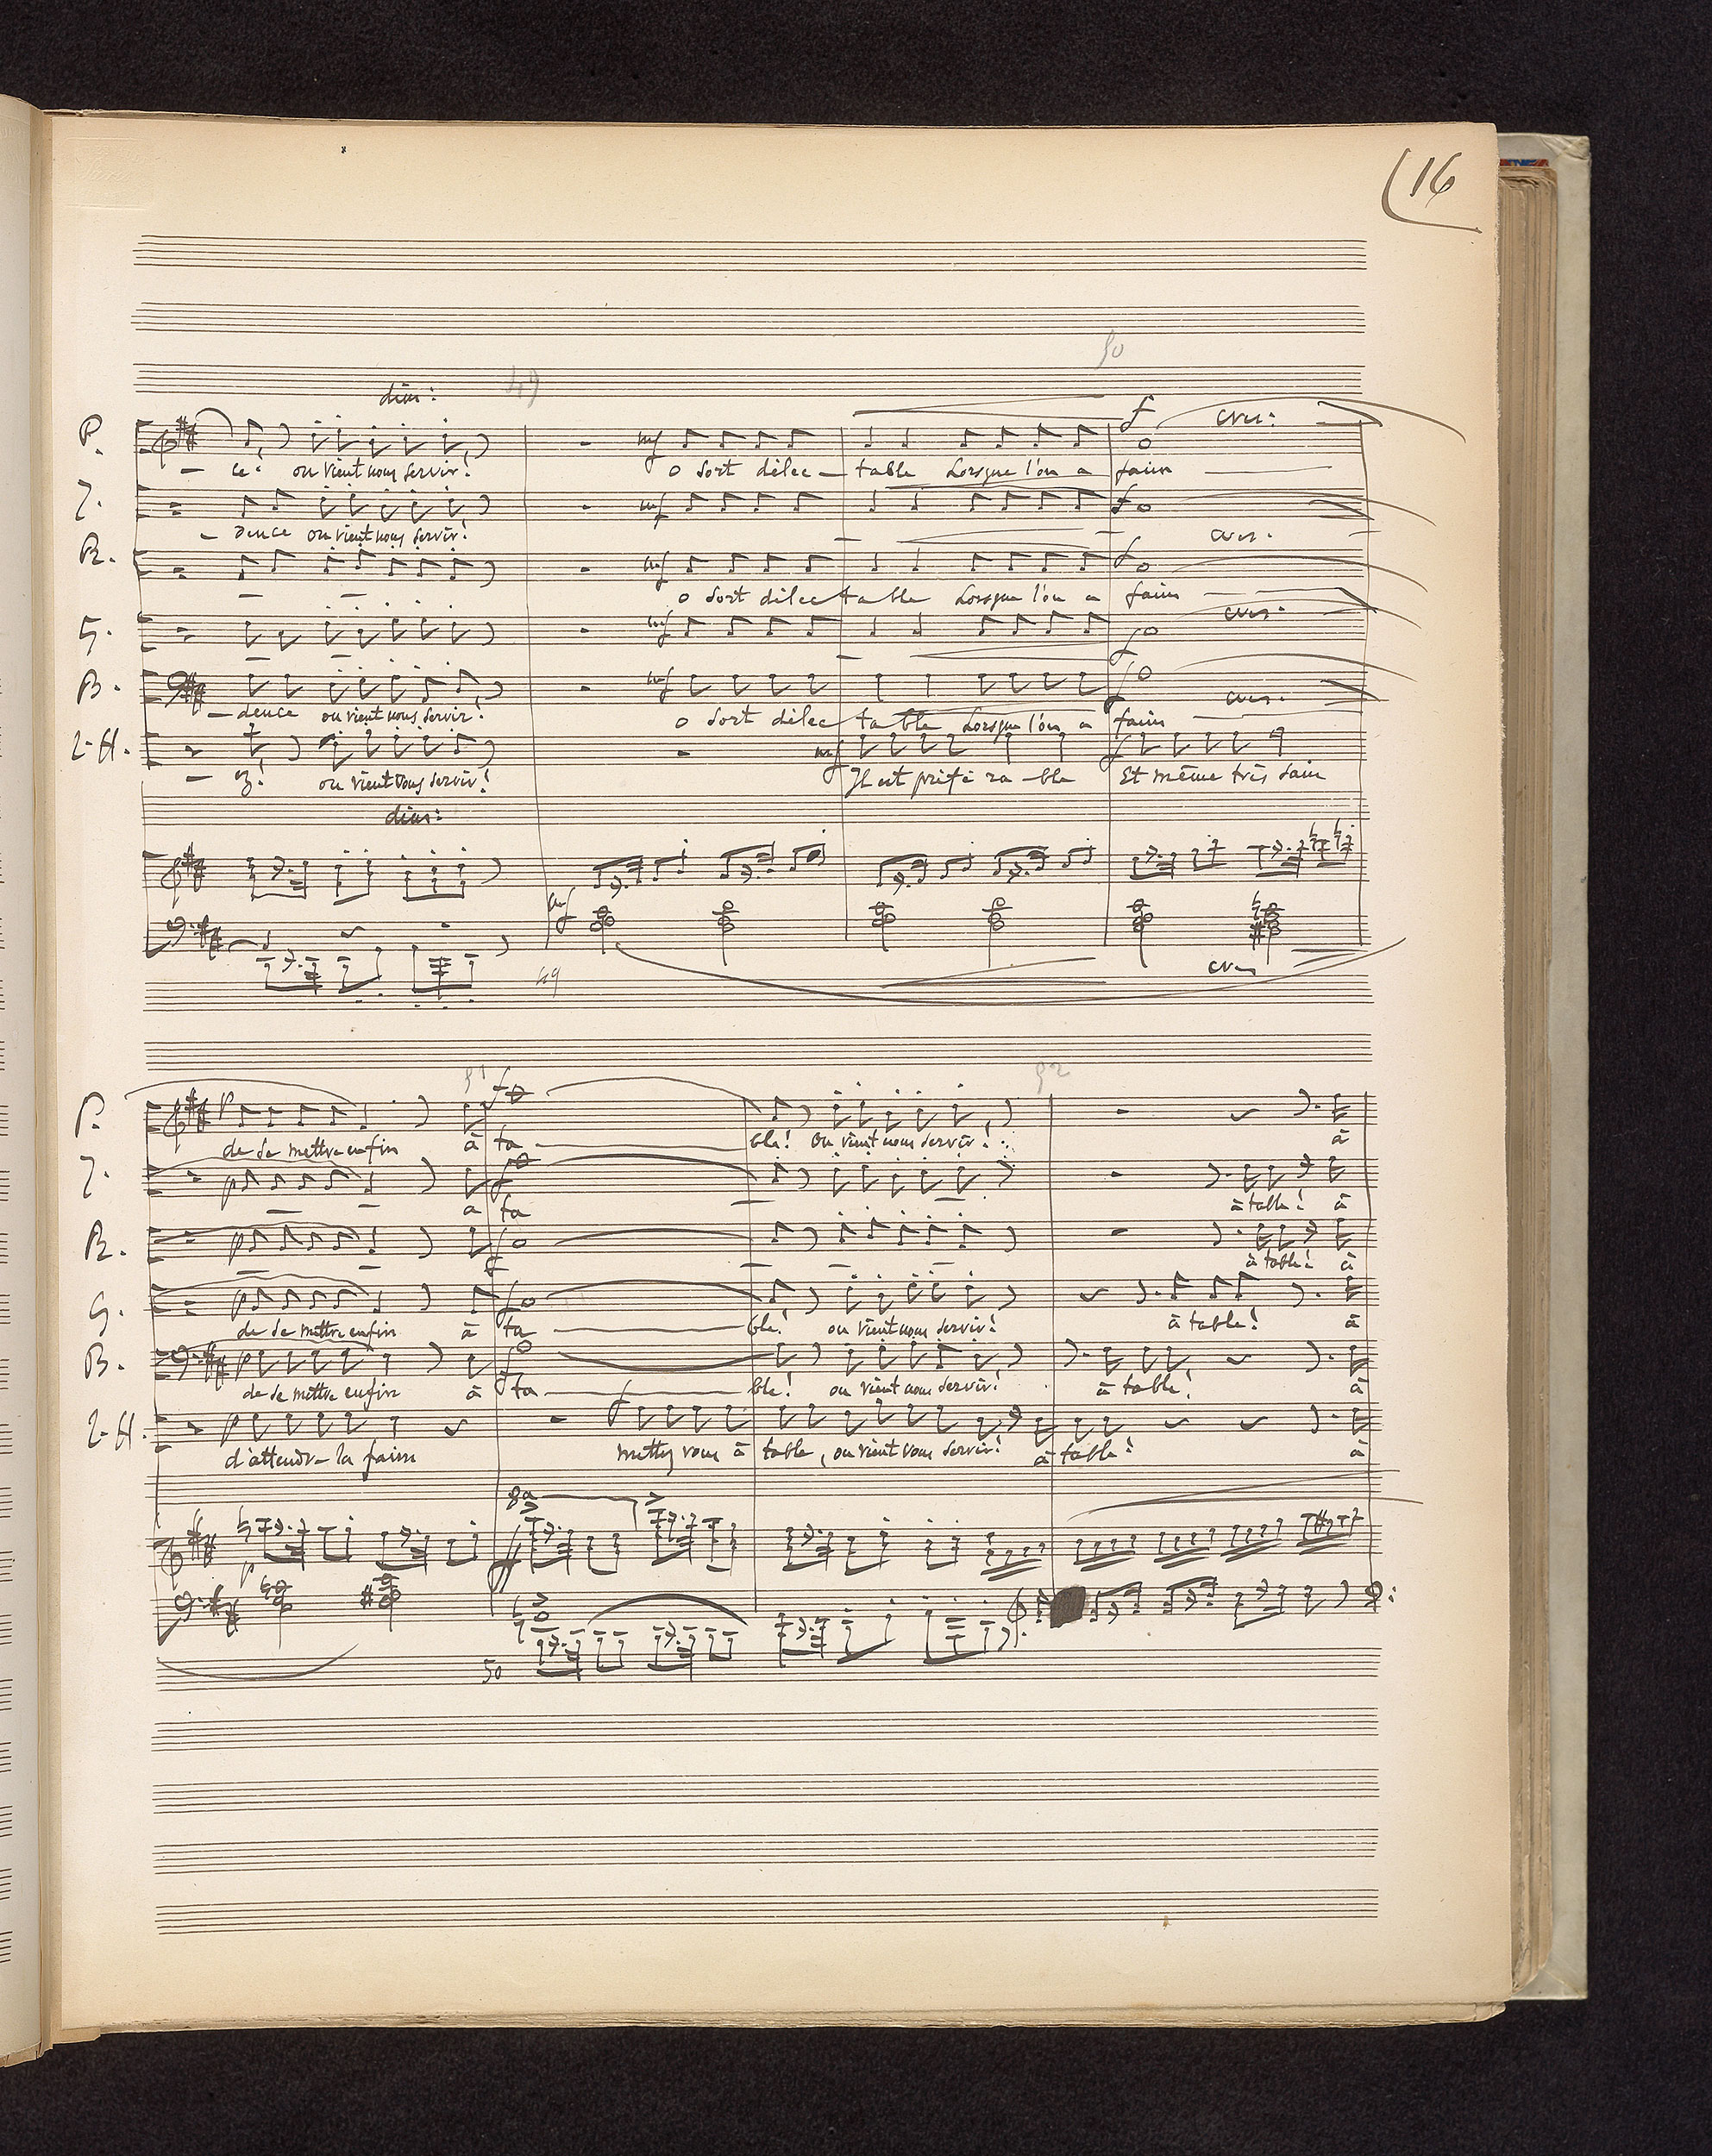 16
50
dim: 49
P. f cres:
mf
– ce! on vient nous servir! o sort délec – table Lorsque l'on a faim
J. mf f
– dence on vient nous servir! cres.
R. mf f
o sort délectable Lorsque l'on a faim
G. mf f cres:
B. mf f cres.
– dence on vient nous servir! o sort délectable Lorsque l'on a faim
L-H. mf f
– ez! on vient vous servir! Il est préférable Et même très sain
dim:
mf
49 cres
51 52
P. p f
de se mettre enfin à ta ble! on vient nous servir! à
J. p f
à ta à table! à
R. p f
à table! à
G. p f
de se mettre enfin à ta ble! on vient nous servir! à table! à
B. p f
de se mettre enfin à ta ble! on vient nous servir! à table! à
L-H. p f
d'attendre la faim mettez vous à table, on vient vous servir! à table! à
8a
p ff
50